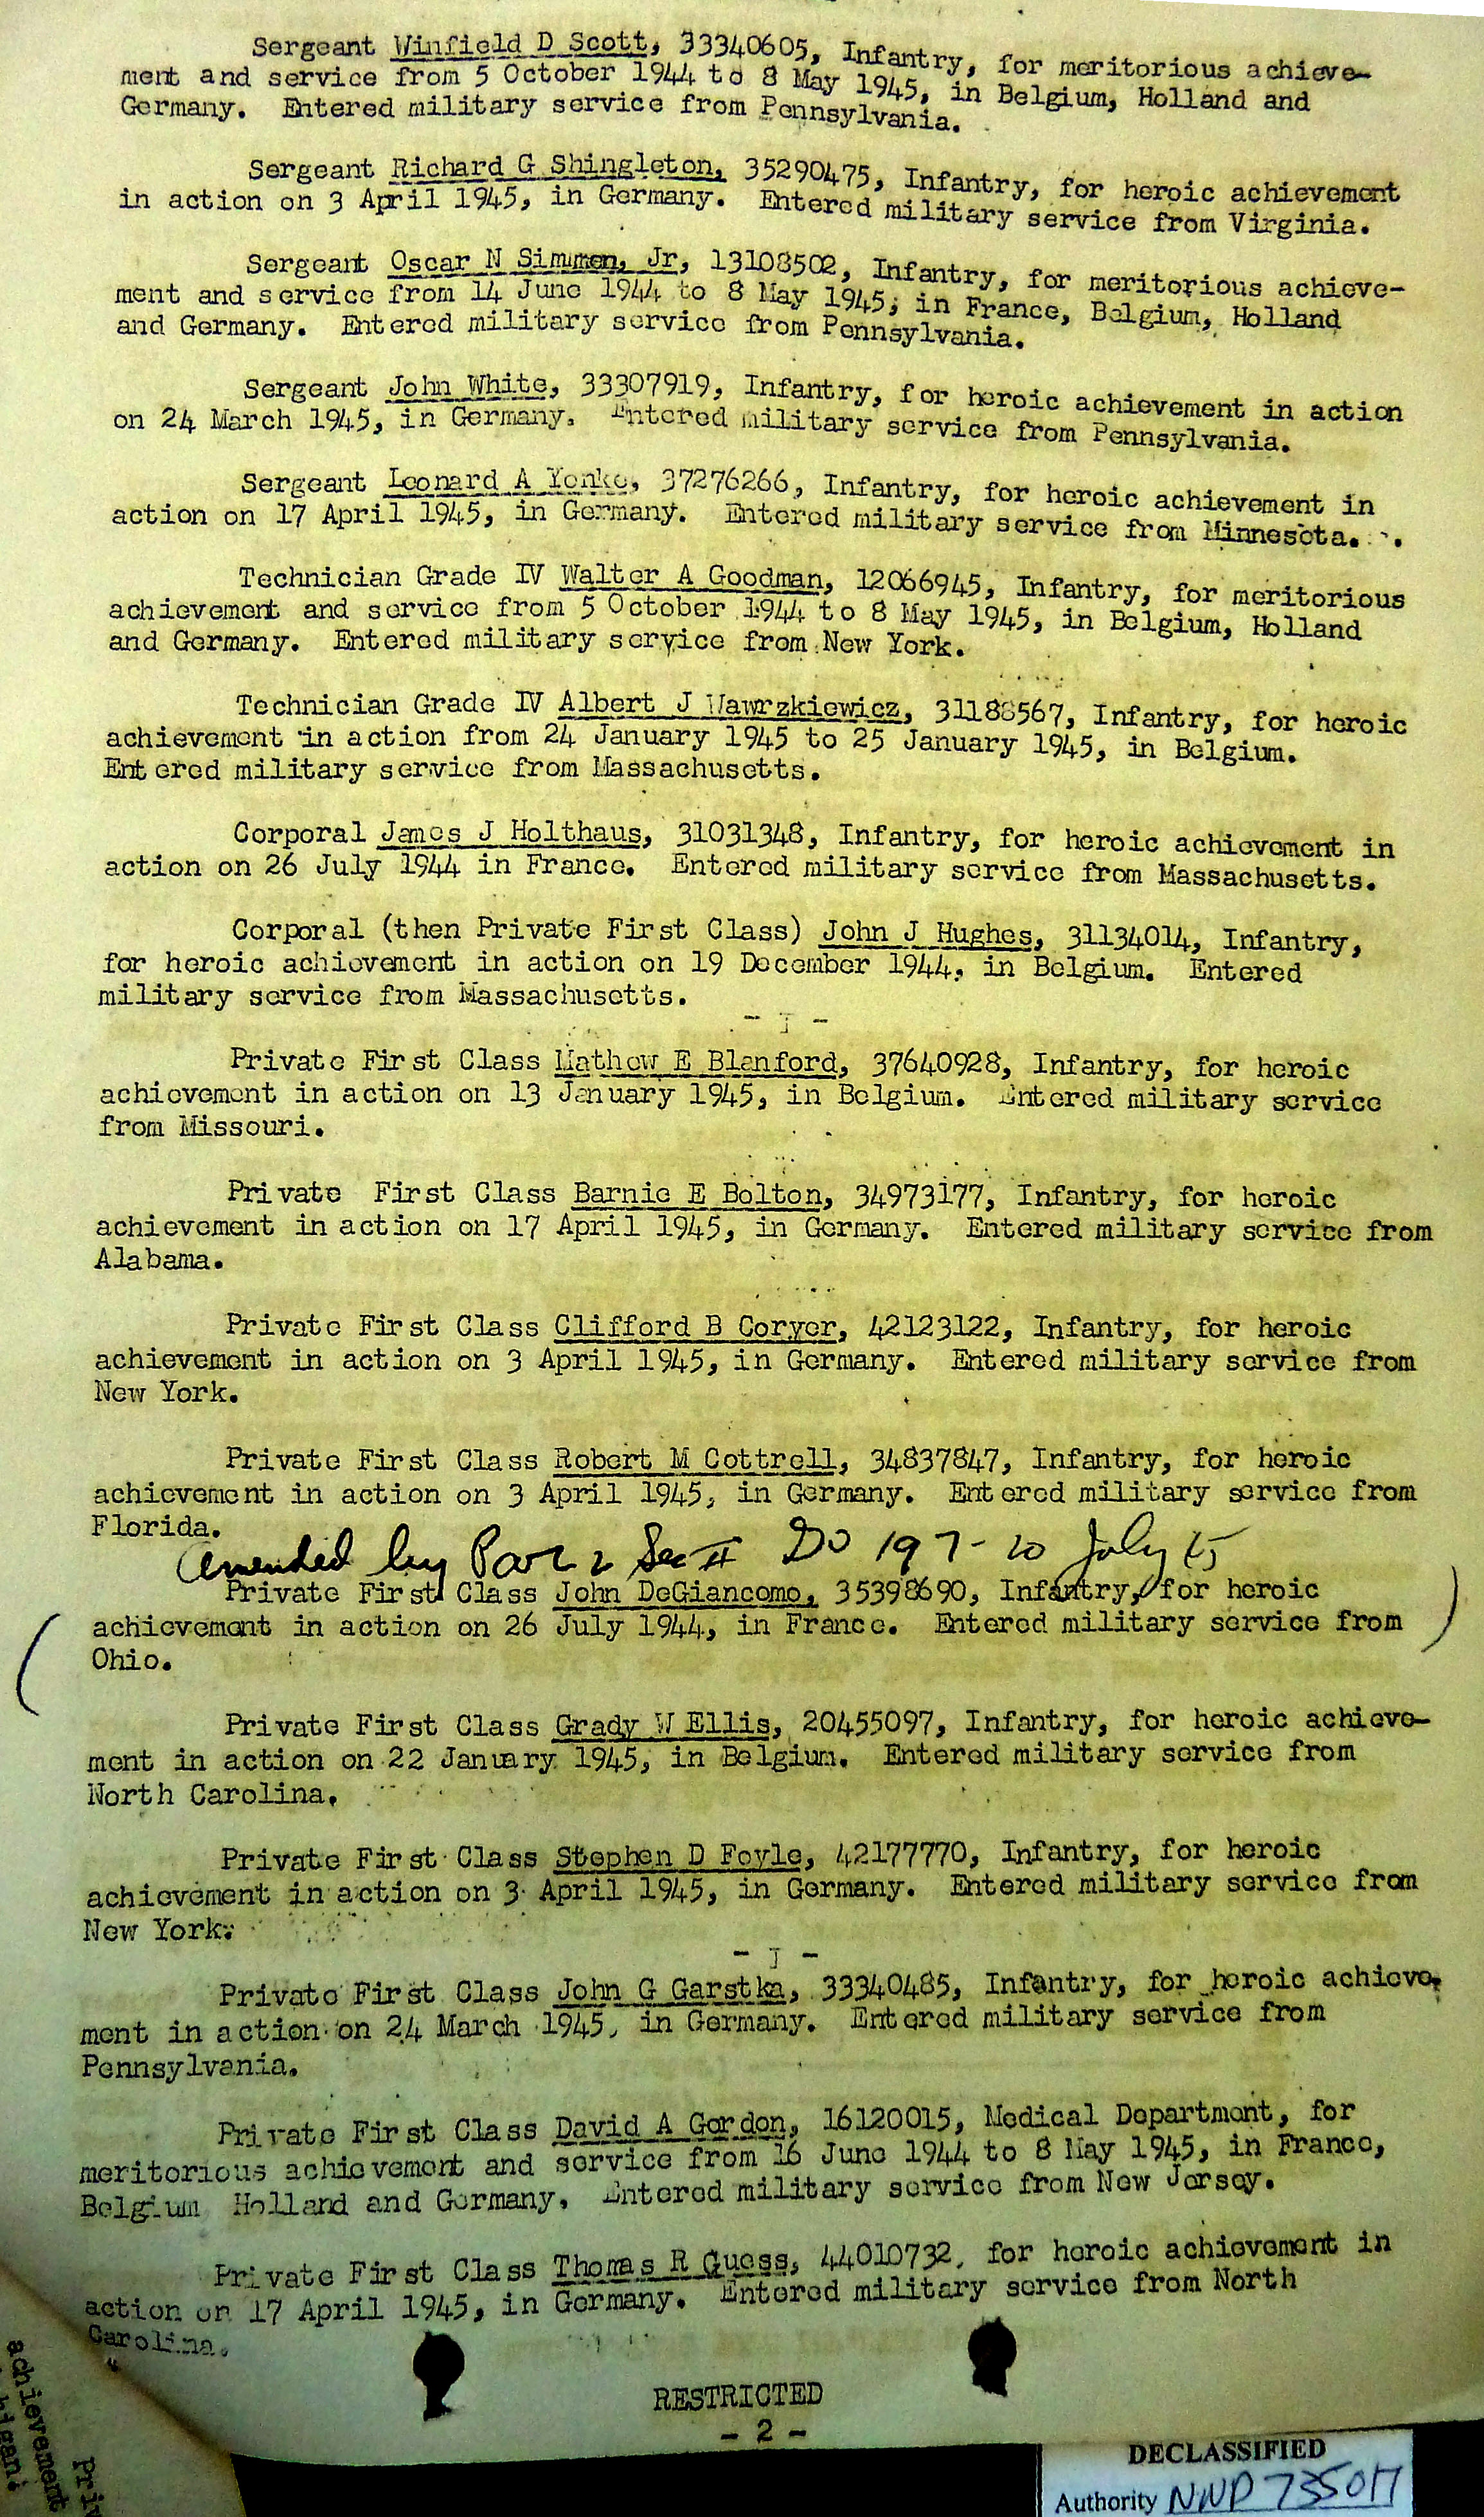 Sergeant Winfield D Scott, 33340605, Infantry, for meritorious achieve-
ment and service from 5 October 1944 to 8 May 1945, in Belgium, Holland and
Germany. Entered military service from Pennsylvania.
Sergeant Richard G Shingleton, 35290475, Infantry, for heroic achievement
in action on 3 April 1945, in Germany. Entered military service from Virginia.
Sergeant Oscar N Simmen, Jr, 13108502, Infantry, for meritorious achieve-
ment and service from 14 June 1944 to 8 May 1945, in France, Belgium, Holland
and Germany. Entered military service from Pennsylvania.
Sergeant John White, 33307919, Infantry, for heroic achievement in action
on 24 March 1945, in Germany. Entered military service from Pennsylvania.
Sergeant Leonard A Yonke, 37276266, Infantry, for heroic achievement in
action on 17 April 1945, in Germany. Entered military service from Minnesota.
Technician Grade IV Walter A Goodman, 12066945, Infantry, for meritorious
achievement and service from 5 October 1944 to 8 May 1945, in Belgium, Holland
and Germany. Entered military service from New York.
Technician Grade IV Albert J Wawrzkiewicz, 31188567, Infantry, for heroic
achievement in action from 24 January 1945 to 25 January 1945, in Belgium.
Entered military service from Massachusetts.
Corporal James J Holthaus, 31031348, Infantry, for heroic achievement in
action on 26 July 1944 in France. Entered military service from Massachusetts.
Corporal (then Private First Class) John J Hughes, 31134014, Infantry,
for heroic achievement in action on 19 December 1944, in Belgium. Entered
military service from Massachusetts.
- I -
Private First Class Mathew E Blanford, 37640928, Infantry, for heroic
achievement in action on 13 January 1945, in Belgium. Entered military service
from Missouri.
Private First Class Barnie E Bolton, 34973177, Infantry, for heroic
achievement in action on 17 April 1945, in Germany. Entered military service from
Alabama.
Private First Class Clifford B Coryer, 42123122, Infantry, for heroic
achievement in action on 3 April 1945, in Germany. Entered military service from
New York.
Private First Class Robert M Cottrell, 34837847, Infantry, for heroic
achievement in action on 3 April 1945, in Germany. Entered military service from
Florida.
Amended by Par 2 Sec II GO 197 - 20 July 45
Private First Class John DeGiancomo, 35398690, Infantry, for heroic
achievement in action on 26 July 1944, in France. Entered military service from
Ohio.
Private First Class Grady W Ellis, 20455097, Infantry, for heroic achieve-
ment in action on 22 January 1945, in Belgium. Entered military service from
North Carolina.
Private First Class Stephen D Foyle, 42177770, Infantry, for heroic
achievement in action on 3 April 1945, in Germany. Entered military service from
New York.
- I -
Private First Class John G Garstka, 33340485, Infantry, for heroic achieve-
ment in action on 24 March 1945, in Germany. Entered military service from
Pennsylvania.
Private First Class David A Gordon, 16120015, Medical Department, for
meritorious achievement and service from 16 June 1944 to 8 May 1945, in France,
Belgium Holland and Germany. Entered military service from New Jersey.
Private First Class Thomas R Guess, 44010732, for heroic achievement in
action on 17 April 1945, in Germany. Entered military service from North
Carolina.
RESTRICTED
- 2 -
achievement
Priv
DECLASSIFIED
Authority NND 735017